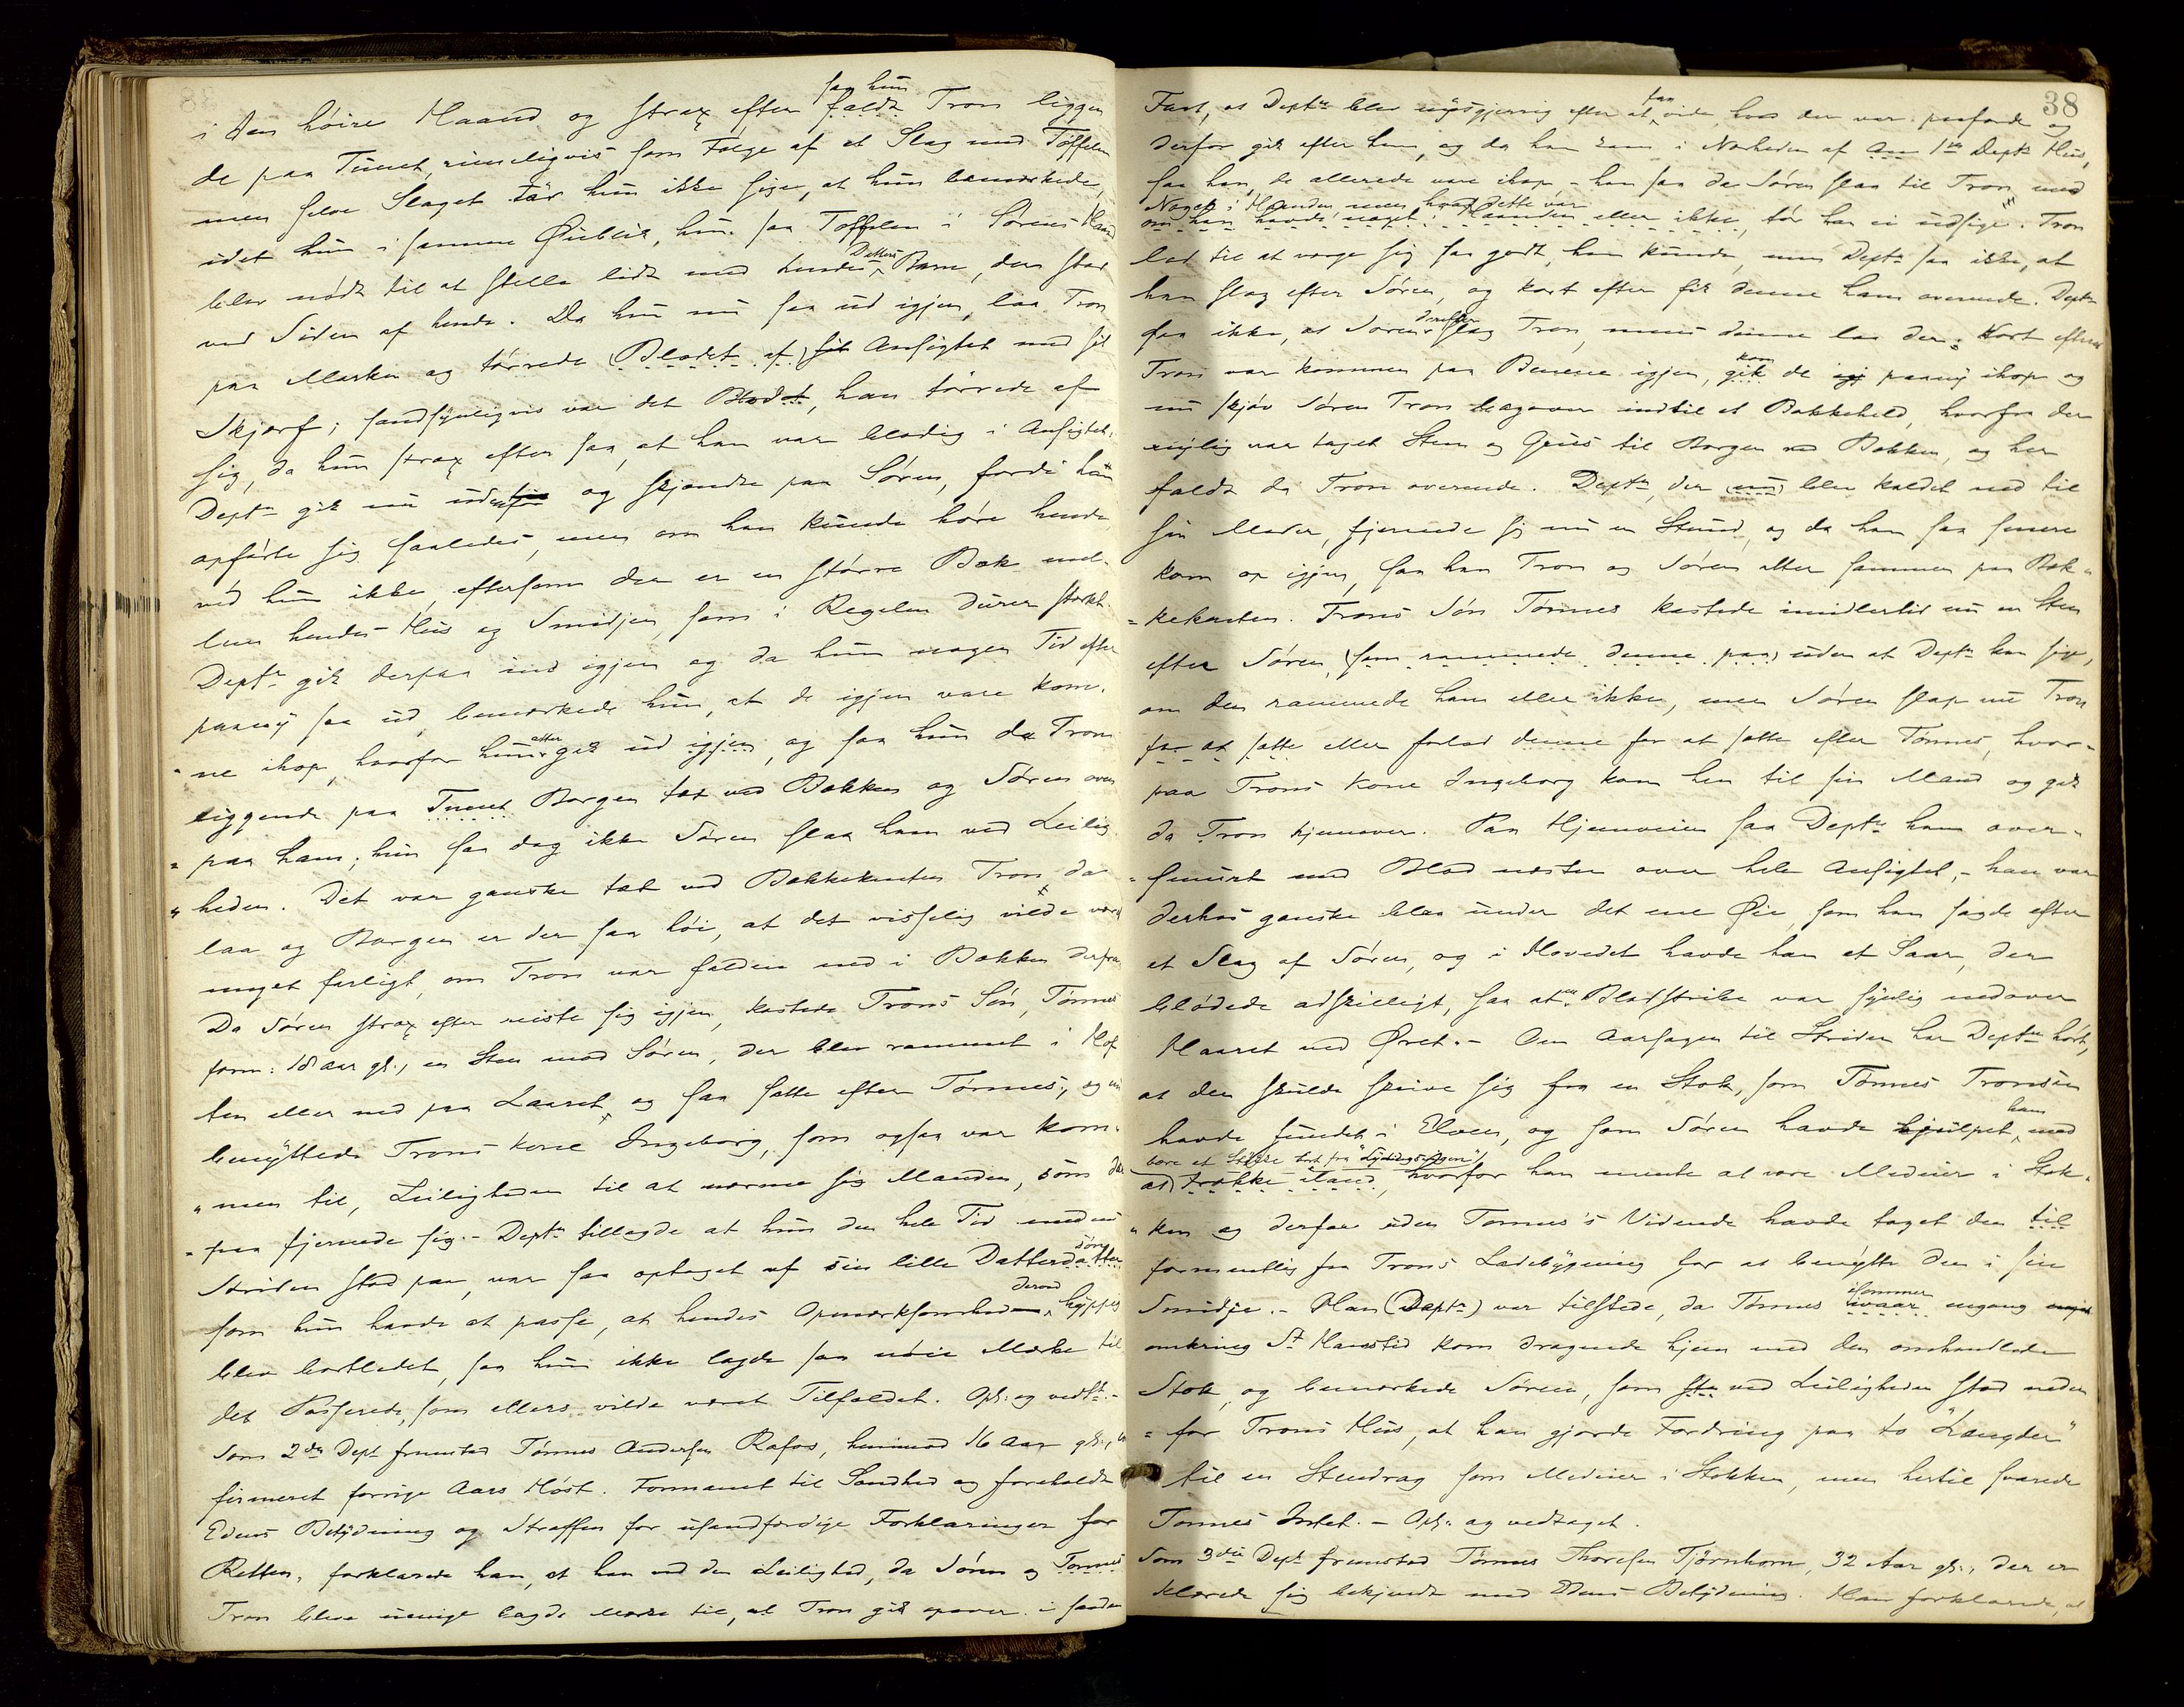 i den høire Haand og strax efter faldt saa hun Tron liggen
de paa Tunet, rimeligvis som Følge af et Slag med Tøffelen
men selve Slaget tør hun ikke sige, at hun bemærkede,
idet hun i samme Øieblik, hun saa Tøffelen i Sørens Haand
blev nødt til at stelle lidt med hendes Datters Barn, der stod
ved Siden af hende. Da hun nu saa ud igjen, laa Tron
paa Marken og tørrede (Blodet af) sit Ansigtet med sit
Skjærf; sandsynligvis var det Blodet, han tørrede af
sig, da hun strax efter saa, at han var blodig i Ansigtet.
Dept. gik nu udenfor og skjændte paa Søren, fordi han
opførte sig saaledes, men om han kunde høre hende
véd hun ikke, eftersom der er en større Bæk mel-
lem hendes Hus og Smidjen, som i Regelen durer stærkt.
Dept. gik derpaa ind igjen og da hun nogen Tid efter
paany saa ud, bemærkede hun, at de igjen vare kom-
ne ihop, hvorfor hun atter gik ud igjen, og saa hun da Tron
liggende paa Tunet Borgen tæt ved Bækken og Søren oven
paa ham; hun saa dog ikke Søren slaa ham ved Leilig-
heden. Det var ganske tæt ved Bækkekanten Tron da
laa og Borgen er der saa høi, at det visselig vilde været
meget farligt, om Tron var falden ned i Bækken derfra
Da Søren strax efter reiste sig igjen, kastede Trons Søn, Tønnes
form: 18 Aar gl., en Sten mod Søren, der blev rammet i Hof-
ten eller ned paa Laaret og saa satte efter Tønnes, og nu
benyttede Trons Kone Ingeborg, som ogsaa var kom-
men til, Leiligheden til at nærme sig Manden, som der
paa fjernede sig. - Dept. tillagde at hun den hele Tid medens
Striden stod paa, var saa optaget af sin lille Dattersøn datter
som hun havde at passe, at hendes Opmærksomhed derved hyppig
blev bortledet, saa hun ikke lagde saa nøie Mærke til
det Passerede, som ellers vilde været Tilfældet. Opl. og vedst. -
Som 2det Dept fremstod Tønnes Andersen Rafos, henimod 16 Aar gl.,
firmeret forrige Aars Høst. Formanet til Sandhed og foreholdt
Edens Betydning og Straffen for usandfærdige Forklaringer for
Retten, forklarede han, at han ved den Leilighed, da Søren og Tønnes
Tron bleve uenige lagde Mærke til, at Tron gik opover i saadan
38
Fart, at Dept. blev nysgjerrig efter at faa vide, hvad der var paafærde og
derfor gik efter ham, og da han kom i Nærheden af 1ste Depts Hus,
saa han, de allerede vare ihop, - han saa da Søren slaa til Tron med
Noget i Haanden men hvad dette var
om han havde noget i Haanden eller ikke, tør han ei udsige. Tron
lod til at værge sig saa godt, han kunde, men Dept. saa ikke, at
han slog efter Søren, og kort efter fik denne ham overende. Dept.
saa ikke, at Søren derefter slog Tron, mens denne laa der. Kort efterat
Tron var kommen paa Benene igjen, gik kom de paany ihop og
nu skjøv Søren Tron bagover indtil et Bakkeheld, hvorfra der
nylig var taget Sten og Grus til Borgen ved Bækken, og her
faldt da Tron overende. Dept., der (nu) blev kaldet ned til
sin Moder, fjernede sig nu en Stund, og da han saa senere
kom op igjen, saa han Tron og Søren atter sammen paa Bæk-
kekanten. Trons Søn Tønnes kastede imidlertid nu en Sten
efter Søren, (som rammede denne paa) uden at Dept. kan sige,
om den rammede ham eller ikke, men Søren slap nu Tron
for at sætte eller forlod denne for at sætte efter Tønnes, hvor-
paa Trons Kone Ingeborg kom hen til sin Mand og gik
da Tron hjemover. Paa Hjemveien saa Dept. ham over-
smurt med Blod næsten over hele Ansigtet, - han var
derhos ganske blaa under det ene Øie, som han sagde efter
et Slag af Søren, og i Hovedet havde han et Saar, der
blødede adskilligt, saa at en Blodstribe var synlig nedover
Haaret ved Øret. - Om Aarsagen til Striden har Dept. hørt,
at den skulde skrive sig fra en Stok, som Tønnes Tronsen
havde fundet i Elven, og som Søren havde hjulpet ham med
bære et Stykke bort fra
at trække iland, hvorfor han mente at være Medeier i Stok-
ken og derfor uden Tønnes's Vidende havde taget den til
formentlig fra Trons Ladebygning for at benytte den i sin
Smidje. - Han (Dept.) var tilstede, da Tønnes ivaar isommer engang
omkring St Hanstid kom dragende hjem med den omhandlede
Stok, og bemærkede Søren, som ved Leiligheden stod neden
for Trons Hus, at han gjorde Fordring paa to "Længder"
til en Stendrag som Medeier i Stokken, men hertil svarede
Tønnes Intet. - Opl. og vedtaget.
Som 3die Dept. fremstod Tønnes Thoresen Tjørnhom, 32 Aar gl., der er
klærede sig bekjendt med Edens Betydning. Han forklarede, at